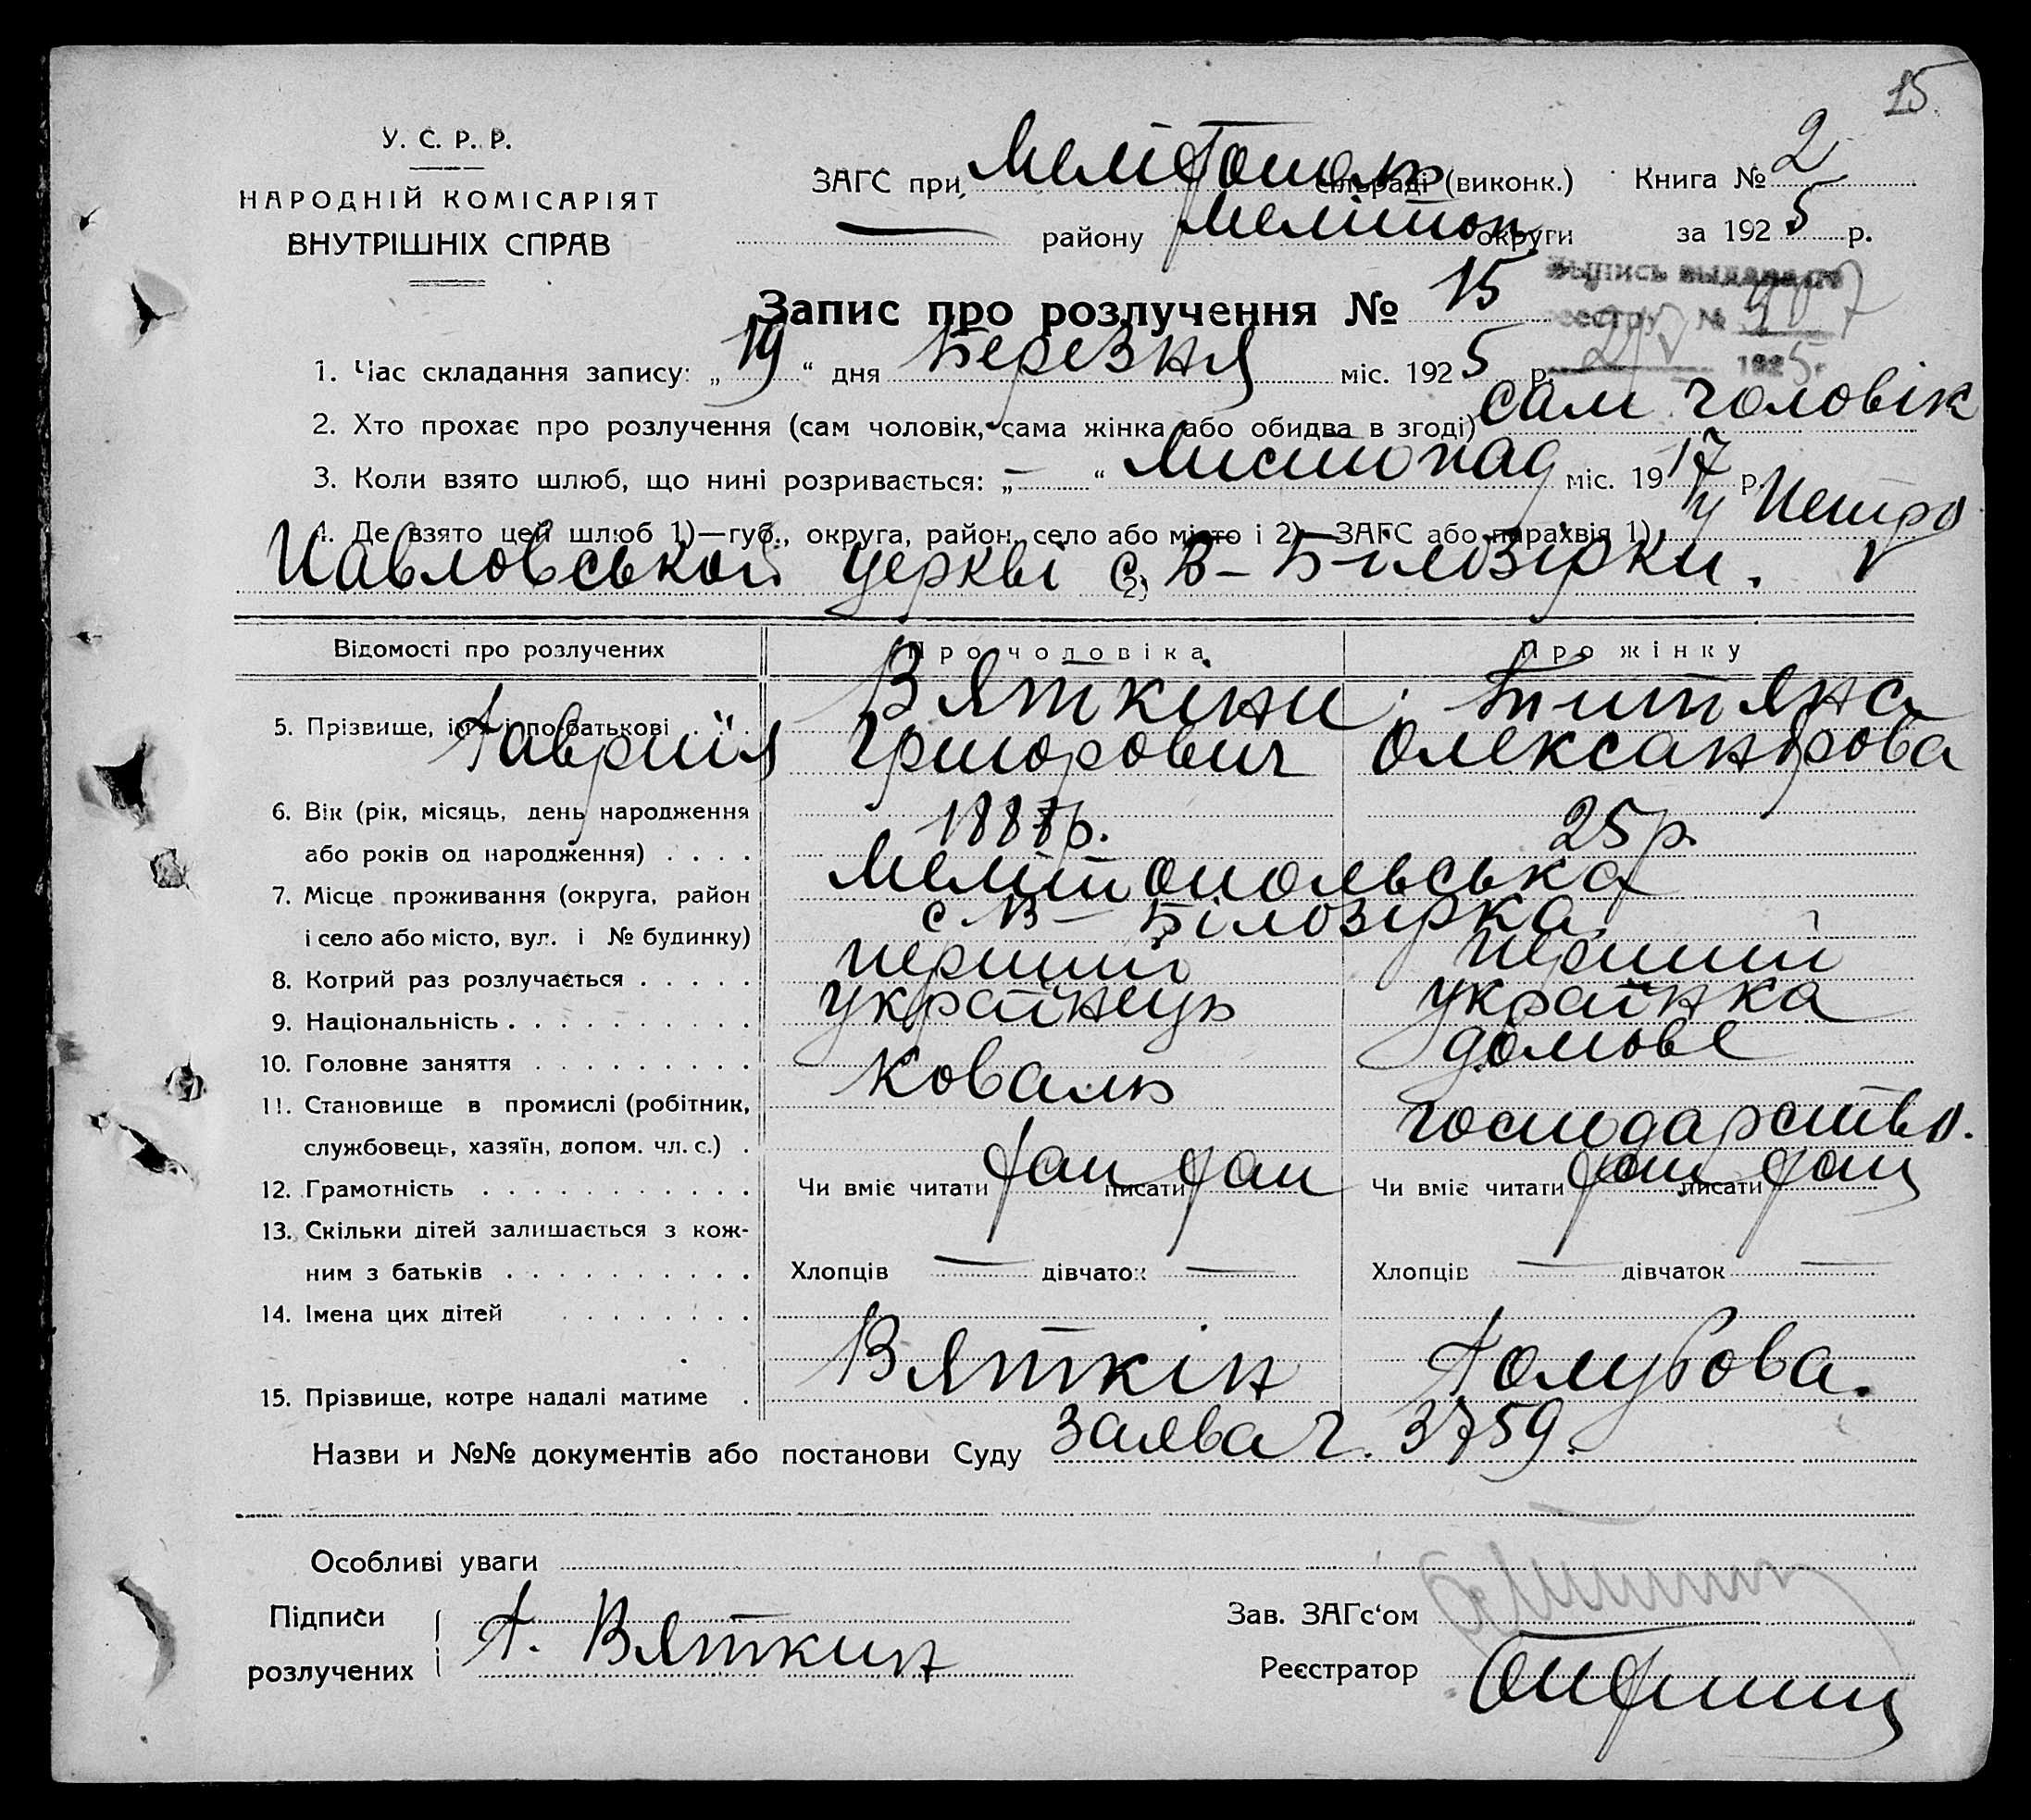 15.
У. С. Р. Р.
НАРОДНІЙ КОМІСАРІЯТ
ВНУТРІШНІХ СПРАВ
ЗАГС при Мелітополь сільраді (виконк.) Книга № 2
— району Мелітоп. округи за 1925 р.
Выпись выдана по
реестру №
1925 г.
Запис про розлучення № 15
1. Час складання запису: „19“ дня Березня міс. 1925 р.
2. Хто прохає про розлучення (сам чоловік, сама жінка або обидва в згоді) сам чоловік
3. Коли взято шлюб, що нині розривається: „—“ Листопад міс. 1917 р.
4. Де взято цей шлюб 1)—губ., округа, район, село або місто і 2)—ЗАГС або парахвія 1) у Петро
Павловськой церкві с. В-Білозірки.
2)
Відомості про розлучених Про чоловіка Про жінку
Вяткіни: Титяна
5. Прізвище, ім'я і по батькові Гавриїл Григорович Олександрова
6. Вік (рік, місяць, день народження 25 р.
або років од народження)
7. Місце проживання (округа, район Мелітопольська
і село або місто, вул. і № будинку) с. В-Білозірка
8. Котрий раз розлучається перший перший
9. Національність українець українка
10. Головне заняття Коваль домове
11. Становище в промислі (робітник, господарство.
службовець, хазяїн, допом. чл. с.)
12. Грамотність Чи вміє читати так писати так Чи вміє читати так писати так
13. Скільки дітей залишається з кож-
ним з батьків Хлопців — дівчаток — Хлопців — дівчаток —
14. Імена цих дітей
15. Прізвище, котре надалі матиме Вяткін Голубова.
Назви и №№ документів або постанови Суду Заява ч. 3759.
Особливі уваги
Підписи
розлучених Г. Вяткин
Зав. ЗАГс'ом
Реєстратор